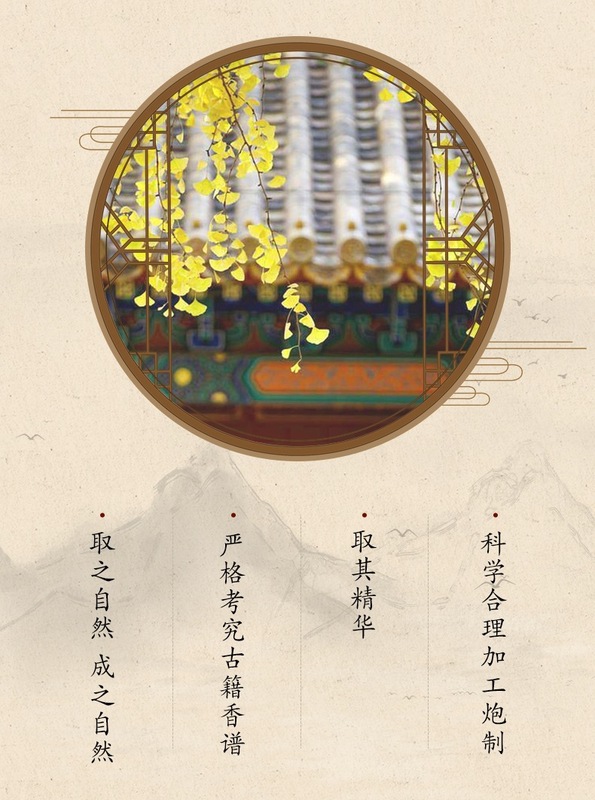 取之自然 成之自然
严格考究古籍香谱
取其精华
科学合理加工炮制